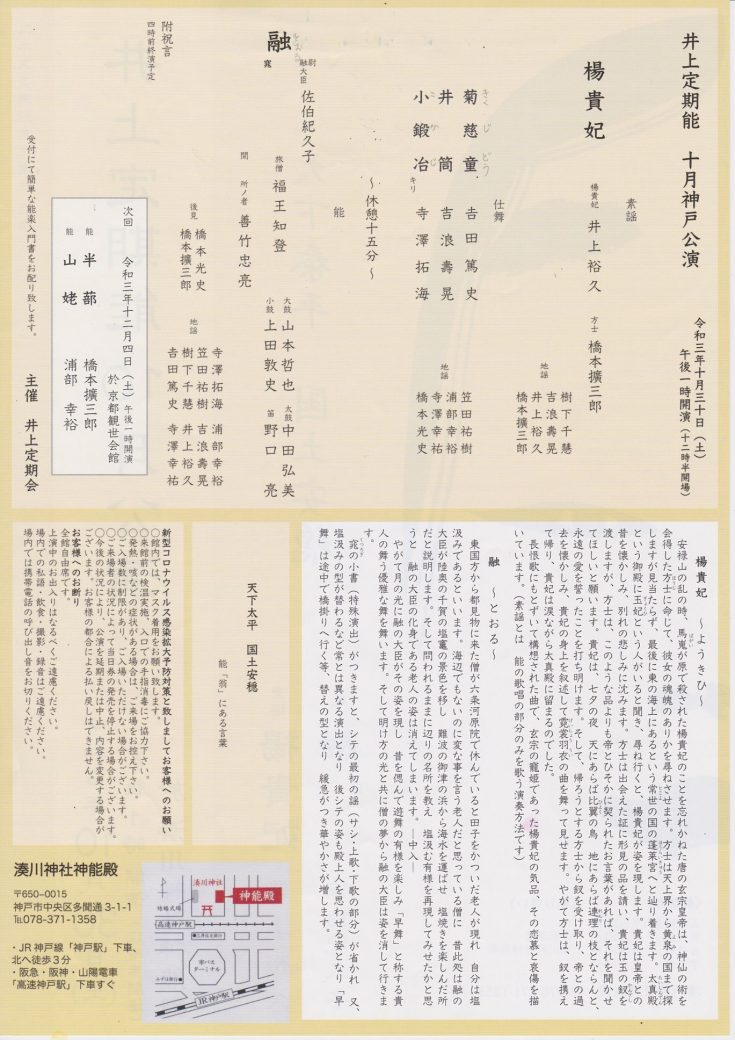 井上定期能　十月神戸公演
令和三年十月三十日（土）
午後一時開演（十二時半開場）
素謡
楊貴妃
楊貴妃　井上裕久
方士　橋本擴三郎
地謡
樹下千慧
吉浪壽晃
井上裕久
橋本擴三郎
仕舞
菊慈童　吉田篤史
きくじどう
井筒　吉浪壽晃
小鍛冶キリ　寺澤拓海
こかじ
地謡
笠田祐樹
浦部幸裕
寺澤幸祐
橋本光史
〜休憩十五分〜
能
融
とおる
窕
尉
融大臣　佐伯紀久子
旅僧　福王知登
間　所ノ者　善竹忠亮
大鼓　山本哲也
小鼓　上田敦史
太鼓　中田弘美
笛　野口亮
後見
橋本光史
橋本擴三郎
地謡
寺澤拓海　浦部幸裕
笠田祐樹　吉浪壽晃
樹下千慧　井上裕久
吉田篤史　寺澤幸祐
附祝言
四時前終演予定
次回　令和三年十二月四日（土）午後一時開演
於 京都観世会館
能　半蔀　橋本擴三郎
能　山姥　浦部幸裕
受付にて簡単な能楽入門書をお配り致します。
主催　井上定期会
楊貴妃　〜ようきひ〜
安禄山の乱の時、馬嵬が原で殺された楊貴妃のことを忘れかねた唐の玄宗皇帝は、神仙の術を
会得した方士に命じて、彼女の魂魄のありかを尋ねさせます。方士は天上界から黄泉の国まで探
しますが見当たらず、最後に東の海上にあるという常世の国の蓬莱宮へと辿り着きます。太真殿
という御殿に玉妃という人がいると聞き、尋ね行くと、楊貴妃が姿を現します。貴妃は皇帝との
昔を懐かしみ、別れの悲しみに沈みます。方士は出会えた証に形見の品を請い、貴妃は玉の釵を
渡しますが、方士は、このような品よりも帝とひそかに契られたお言葉があれば、それを聞かせ
てほしいと願います。貴妃は、七夕の夜、天にあらば比翼の鳥、地にあらば連理の枝とならんと、
永遠の愛を誓ったことを打ち明けます。そして、帰ろうとする方士から釵を受け取り、帝との過
去を懐かしみ、貴妃の身上を叙述して霓裳羽衣の曲を舞って見せます。やがて方士は、釵を携え
て帰り、貴妃は涙ながら太真殿に留まるのでした。
長恨歌にもとづいて構想された曲で、玄宗の寵姫であった楊貴妃の気品、その恋慕と哀傷を描
いています。（素謡とは　能の歌唱の部分のみを歌う演奏方法です）
融　〜とおる〜
東国方から都見物に来た僧が六条河原院で休んでいると田子をかついだ老人が現れ　自分は塩
汲みであるといいます。海辺でもないのに変な事を言う老人だと思っている僧に　昔此処は融の
大臣が陸奥の千賀の塩竈の景色を移し　難波の御津の浜から海水を運ばせ　塩焼きを楽しんだ所
だと説明します。そして問われるままに辺りの名所を教え　塩汲む有様を再現してみせたかと思
うと　融の大臣の化身である老人の姿は消えてしまいます。―中入―
やがて月の光に融の大臣がその姿を現し　昔を偲んで遊舞の有様を楽しみ「早舞」と称する貴
人の舞う優雅な舞を舞います。そして明け方の光と共に僧の夢から融の大臣は姿を消して行きま
す。
窕の小書（特殊演出）がつきますと、シテの最初の謡（サシ・上歌・下歌の部分）が省かれ　又、
塩汲みの型が替わるなど常とは異なる演出となり　後シテの姿も殿上人を思わせる姿となり「早
舞」は途中で橋掛りへ行く等、替えの型となり　緩急がつき華やかさが増します。
天下太平　国土安穏
能「翁」にある言葉
新型コロナウイルス感染拡大予防対策と致しましてお客様へのお願い
〇館内では、マスク着用をお願い致します。
〇来館前の検温実施、入口での手指消毒にご協力下さい。
〇発熱・咳などの症状がある場合は、ご来場をお控え下さい。
〇ご入場数に制限があり、ご入場いただけない場合がございます。
〇ご来場者の状況によって当日券の発売を停止する場合がございます。
〇今後の状況により、公演を延期または中止、内容を変更する場合が
ございます。お客様の都合による払い戻しはできません。
お客様へのお断り
全館自由席です。
上演中のお出入りはなるべくご遠慮ください。
場内での私語・飲食・撮影・録音はご遠慮ください。
場内では携帯電話の呼び出し音をお切りください。
湊川神社神能殿
〒650-0015
神戸市中央区多聞通3-1-1
℡078-371-1358
・JR神戸線「神戸駅」下車、
北へ徒歩3分
・阪急・阪神・山陽電車
「高速神戸駅」下車すぐ
湊川神社
神能殿
高速神戸駅
バス
ターミナル
JR神戸駅